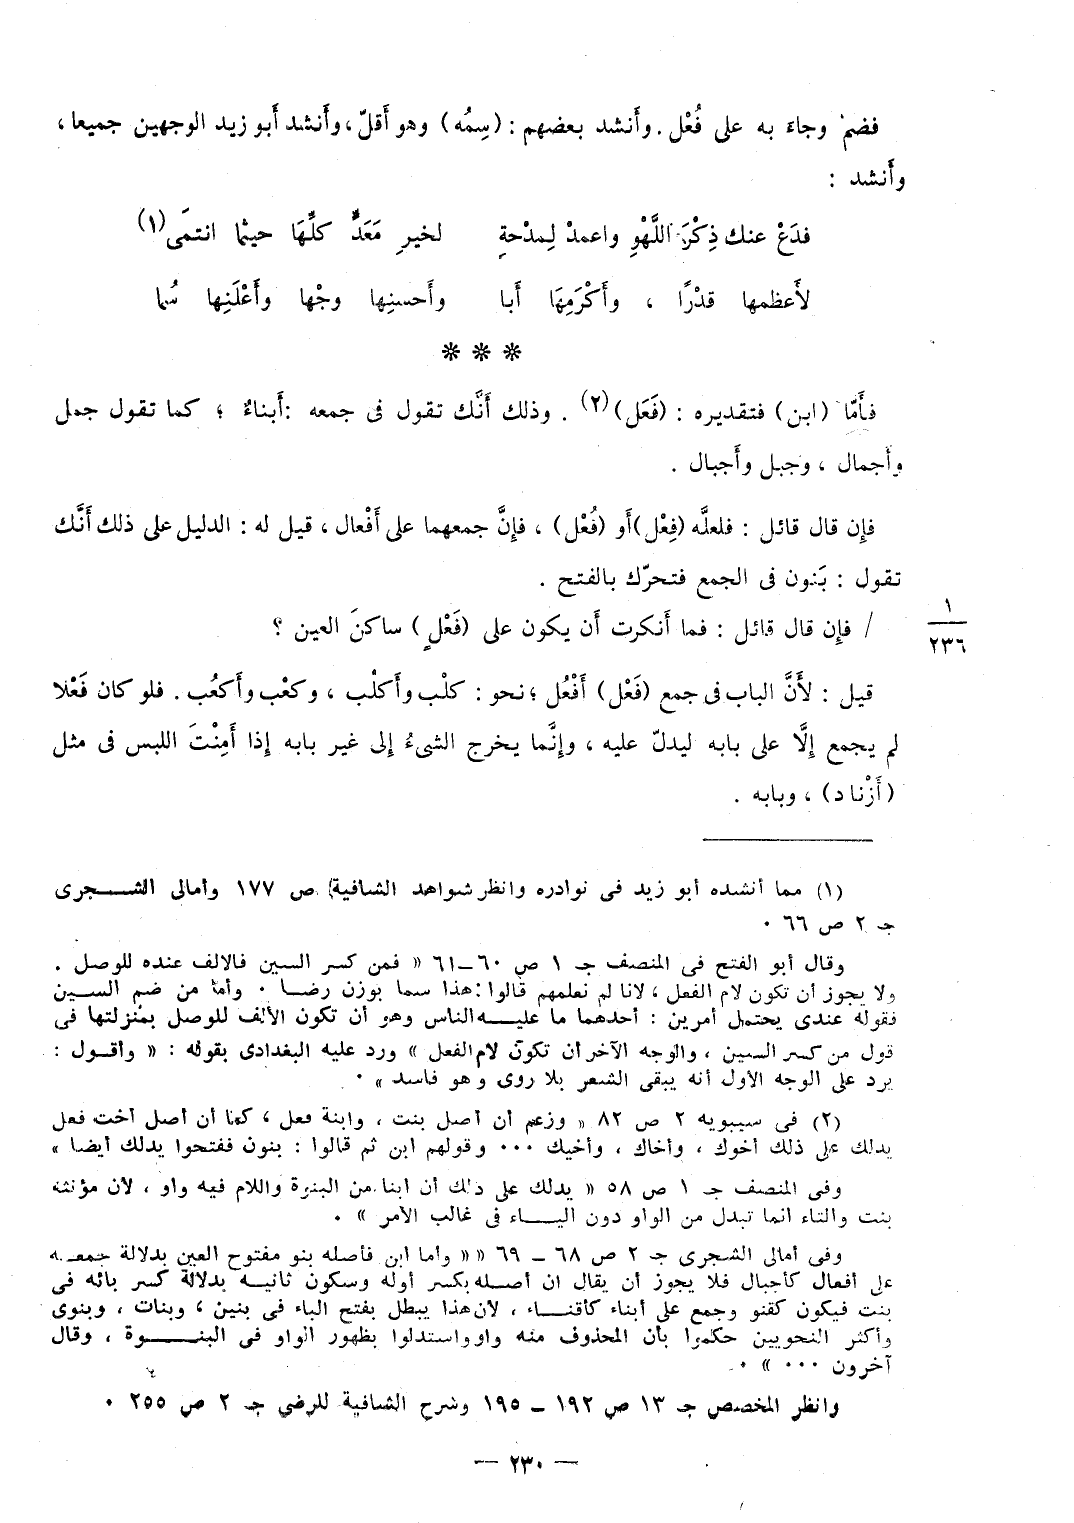 فضمّ وجاءَ به على فُعْل. وأَنشد بعضهم : (سِمُه) وهو أَقلّ، وأَنشد أَبو زيد الوجهين جميعا،
وأَنشد :
فدَعْ عنك ذِكْرَ اللَّهْوِ واعمدْ لِمدْحةٍ لخيرِ مَعَدٍّ كلِّهَا حيثما انتمَى(١)
لأَعظمها قدْرًا ، وأَكْرَمِهَا أَبا وأَحسنِها وجْها وأَعْلَنِها سُما
* * *
فأَمّا (ابن) فتقديره : (فَعَل)(٢) . وذلك أَنَّك تقول فى جمعه :أَبناءٌ ؛ كما تقول جمل
وأَجمال ، وجبل وأَجبال .
فإِن قال قائل : فلعلَّه (فِعْل)أَو (فُعْل) ، فإِنَّ جمعهما على أَفْعال ، قيل له : الدليل على ذلك أَنَّك
تقول : بَنون فى الجمع فتحرّك بالفتح .
/ فإِن قال قائل : فما أَنكرت أَن يكون على (فَعْلٍ) ساكنَ العين ؟
١
٢٣٦
قيل : لأَنَّ الباب فى جمع (فَعْل) أَفْعُل ؛نحو : كلْب وأَكلْب ، وكعْب وأَكعُب . فلو كان فَعْلا
لم يجمع إِلَّا على بابه ليدلّ عليه ، وإِنَّما يخرج الشىءُ إِلى غير بابه إِذا أَمِنْتَ اللبس فى مثل
(أَزْناد) ، وبابه .
(١) مما أنشده أبو زيد فى نوادره وانظر شواهد الشافية ص ١٧٧ وأمالى الشجرى
جـ ٢ ص ٦٦ ٠
وقال أبو الفتح فى المنصف جـ ١ ص ٦٠–٦١ « فمن كسر السين فالالف عنده للوصل .
ولا يجوز أن تكون لام الفعل ، لانا لم نعلمهم قالوا : هذا سما بوزن رضا ٠ وأما من ضم السين
فقوله عندى يحتمل أمرين : أحدهما ما عليه الناس وهو أن تكون الألف للوصل بمنزلتها فى
قول من كسر السين ، والوجه الآخر أن تكون لام الفعل » ورد عليه البغدادى بقوله : « وأقول :
يرد على الوجه الأول أنه يبقى الشعر بلا روى وهو فاسد » ٠
(٢) فى سيبويه ٢ ص ٨٢ « وزعم أن أصل بنت ، وابنة فعل ، كما أن أصل أخت فعل
يدلك على ذلك أخوك ، وأخاك ، وأخيك ٠٠٠ وقولهم ابن ثم قالوا : بنون ففتحوا يدلك أيضا »
وفى المنصف جـ ١ ص ٥٨ « يدلك على ذلك أن ابنا من البنوة واللام فيه واو ، لأن مؤنثه
بنت والتاء انما تبدل من الواو دون اليـاء فى غالب الأمر » ٠
وفى أمالى الشجرى جـ ٢ ص ٦٨ – ٦٩ «« وأما ابن فأصله بنو مفتوح العين بدلالة جمعه
على أفعال كأجبال فلا يجوز أن يقال ان أصله بكسر أوله وسكون ثانيه بدلالة كسر بائه فى
بنت فيكون كقنو وجمع على أبناء كأقنـاء ، لأن هذا يبطل بفتح الباء فى بنين ، وبنات ، وبنوى
وأكثر النحويين حكموا بأن المحذوف منه واو واستدلوا بظهور الواو فى البنـوة ، وقال
آخرون ٠٠٠ » ٠
وانظر المخصص جـ ١٣ ص ١٩٢ – ١٩٥ وشرح الشافية للرضي جـ ٢ ص ٢٥٥ ٠
— ٢٣٠ —